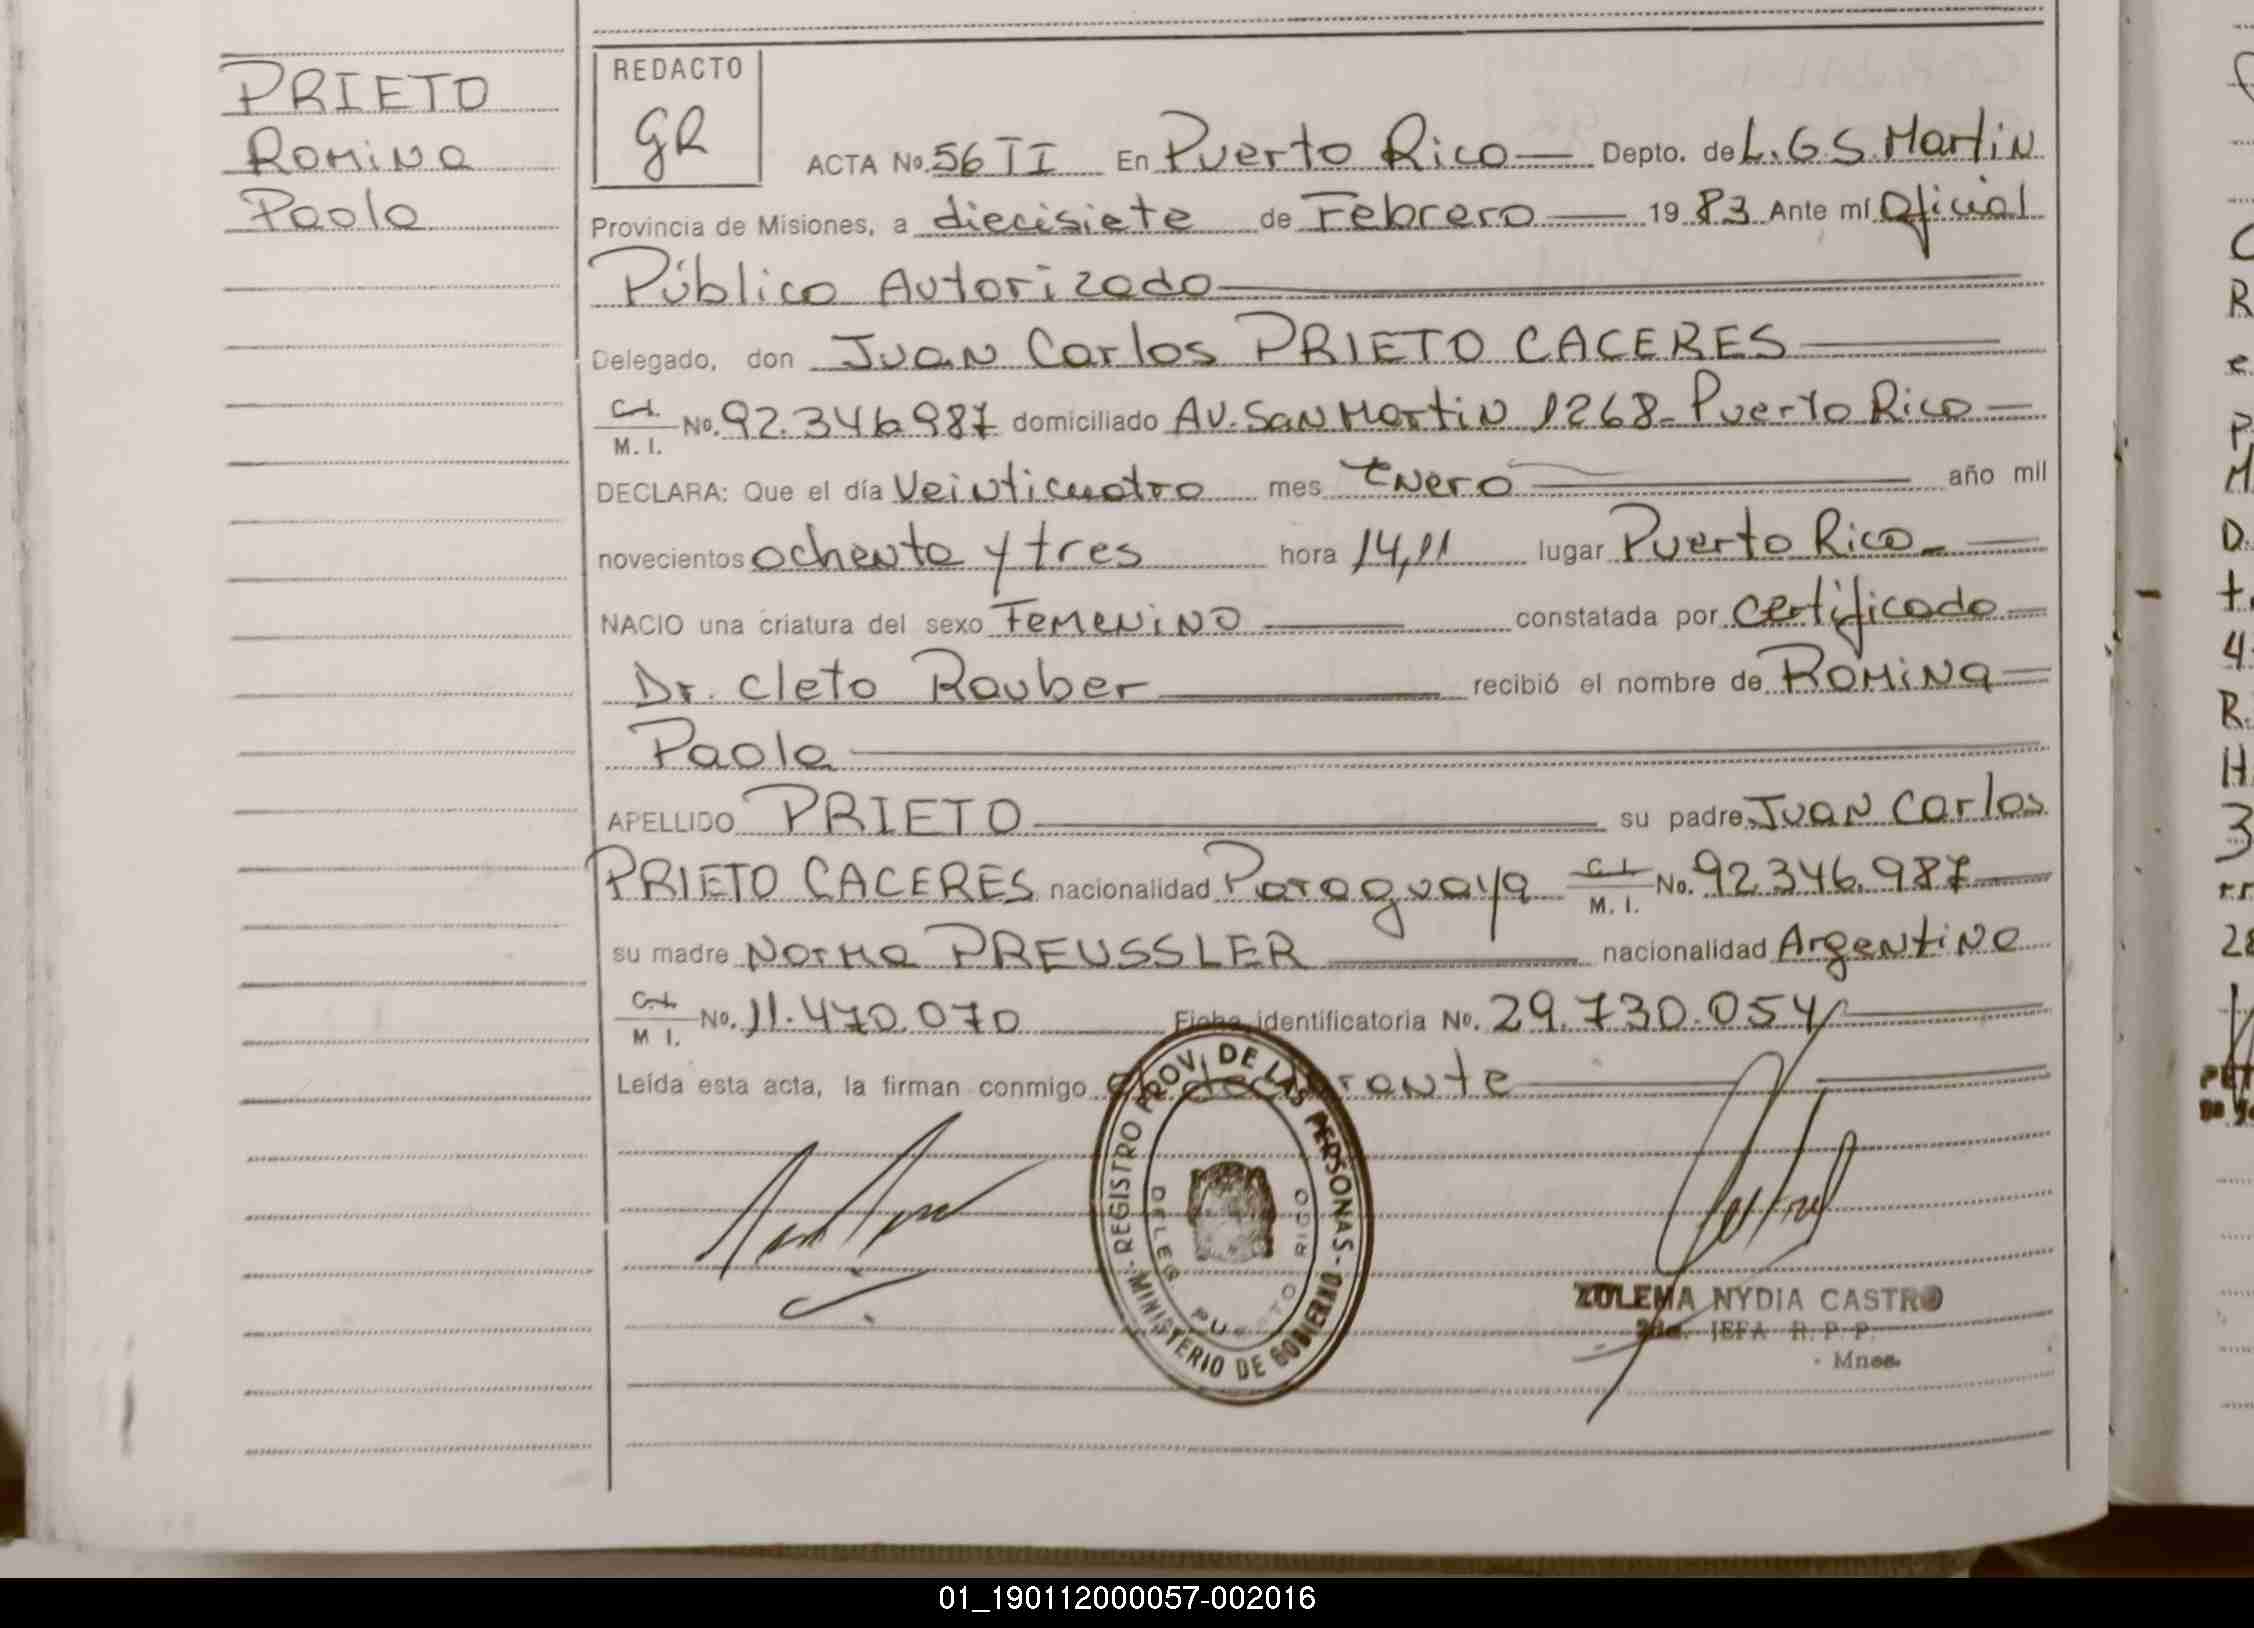 PRIETO
Romina
Paola
REDACTO
GR
ACTA No. 56 TI En Puerto Rico — Depto. de L. G. S. Martin
Provincia de Misiones, a diecisiete de Febrero — 19 83 Ante mí Oficial
Público Autorizado
Delegado, don Juan Carlos PRIETO CACERES
C.I. / M. I. No. 92.346.987 domiciliado Av. San Martin 1268 - Puerto Rico —
DECLARA: Que el día Veinticuatro mes Enero año mil
novecientos ochenta y tres hora 14,11 lugar Puerto Rico. —
NACIO una criatura del sexo Femenino constatada por certificado
Dr. Cleto Rauber recibió el nombre de Romina
Paola
APELLIDO PRIETO su padre Juan Carlos
PRIETO CACERES nacionalidad Paraguaya C.I. / M. I. No. 92.346.987
su madre Norma PREUSSLER nacionalidad Argentina
C.I. / M I. No. 11.470.070 Ficha identificatoria No. 29.730.054
Leída esta acta, la firman conmigo el declarante
REGISTRO PROV. DE LAS PERSONAS - MINISTERIO DE GOBIERNO -
PUERTO RICO
ZULEMA NYDIA CASTRO
2da. JEFA R. P. P.
Mnes.
01_190112000057-002016